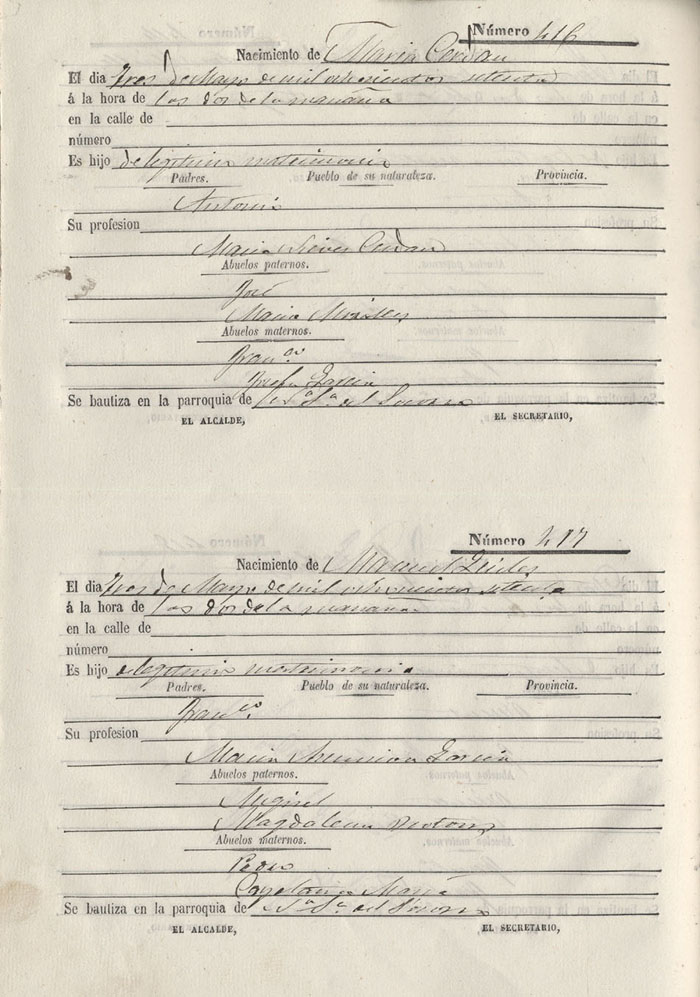 Número 416
Nacimiento de Maria Cerdan
El dia tres de Mayo de mil ochocientos setenta
á la hora de las dos de la mañana
en la calle de
número
Es hijo de legitimo matrimonio
Padres. Pueblo de su naturaleza. Provincia.
Antonio
Su profesion
Maria Nieves Cerdan
Abuelos paternos.
José
Maria
Abuelos maternos.
Fran.co
Josefa Garcia
Se bautiza en la parroquia de N.a S.a del Socorro
EL ALCALDE, EL SECRETARIO,
Número 417
Nacimiento de Manuel
El dia tres de Mayo de mil ochocientos setenta
á la hora de las dos de la mañana
en la calle de
número
Es hijo de legitimo matrimonio
Padres. Pueblo de su naturaleza. Provincia.
Fran.co
Su profesion
Maria Asuncion Garcia
Abuelos paternos.
Miguel
Magdalena
Abuelos maternos.
Pedro
Cayetana Maria
Se bautiza en la parroquia de N.a S.a del Socorro
EL ALCALDE, EL SECRETARIO,